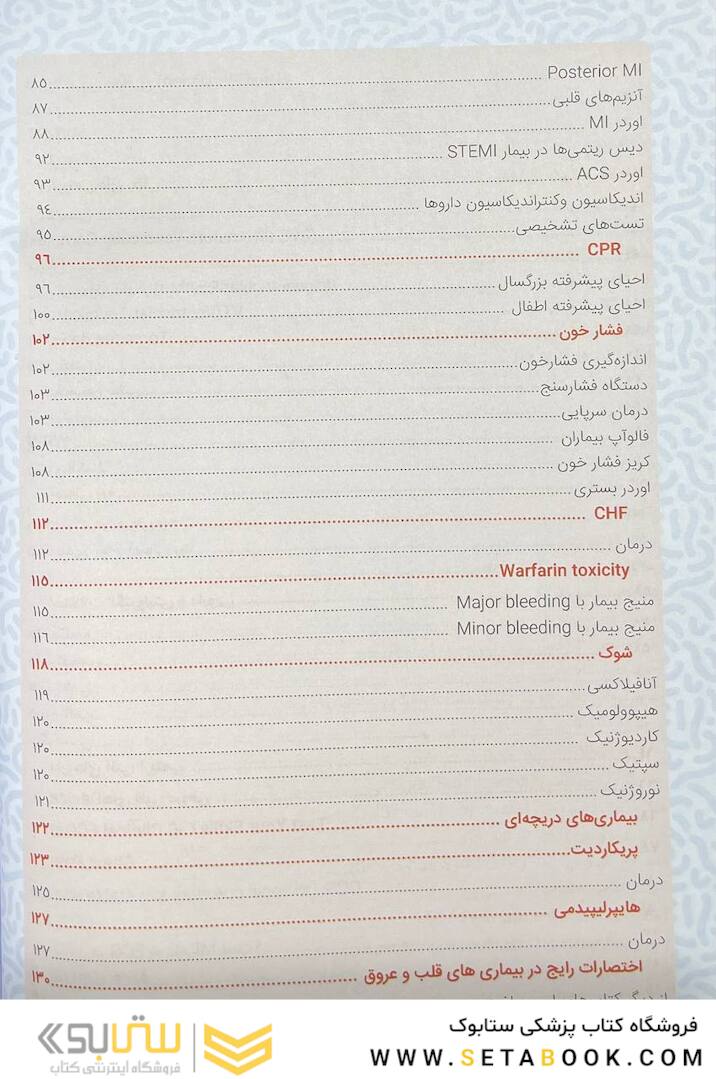 Posterior MI ..... ۸۵
آنزیم‌های قلبی ..... ۸۷
اوردر MI ..... ۸۸
دیس ریتمی‌ها در بیمار STEMI ..... ۹۲
اوردر ACS ..... ۹۳
اندیکاسیون وکنتراندیکاسیون داروها ..... ۹٤
تست‌های تشخیصی ..... ۹۵
CPR ..... ۹٦
احیای پیشرفته بزرگسال ..... ۹٦
احیای پیشرفته اطفال ..... ۱۰۰
فشار خون ..... ۱۰۲
اندازه‌گیری فشارخون ..... ۱۰۲
دستگاه فشارسنج ..... ۱۰۳
درمان سرپایی ..... ۱۰۳
فالوآپ بیماران ..... ۱۰۸
کریز فشار خون ..... ۱۰۸
اوردر بستری ..... ۱۱۱
CHF ..... ۱۱۲
درمان ..... ۱۱۲
Warfarin toxicity ..... ۱۱۵
منیج بیمار با Major bleeding ..... ۱۱۵
منیج بیمار با Minor bleeding ..... ۱۱٦
شوک ..... ۱۱۸
آنافیلاکسی ..... ۱۱۹
هیپوولومیک ..... ۱۲۰
کاردیوژنیک ..... ۱۲۰
سپتیک ..... ۱۲۰
نوروژنیک ..... ۱۲۱
بیماری‌های دریچه‌ای ..... ۱۲۲
پریکاردیت ..... ۱۲۳
درمان ..... ۱۲۵
هایپرلیپیدمی ..... ۱۲۷
درمان ..... ۱۲۷
اختصارات رایج در بیماری های قلب و عروق ..... ۱۳۰
فروشگاه کتاب پزشکی ستابوک
WWW.SETABOOK.COM
ستابوک
فروشگاه اینترنتی کتاب